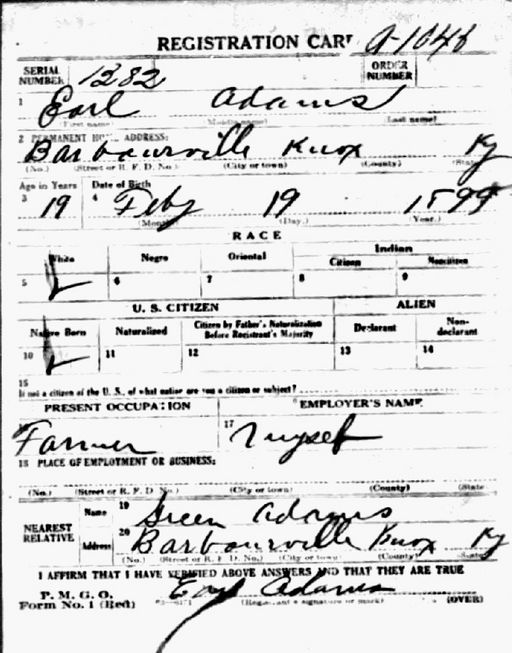 REGISTRATION CARD A-1048
SERIAL NUMBER 1282 ORDER NUMBER
1 Earl Adams
(First name) (Middle name) (Last name)
2 PERMANENT HOME ADDRESS:
Barbourville Knox Ky
(No.) (Street or R. F. D. No.) (City or town) (County) (State)
Age in Years Date of Birth
3 19 4 Feby 19 1899
(Month) (Day.) (Year.)
RACE
White Negro Oriental Indian
Citizen Noncitizen
5 6 7 8 9
U. S. CITIZEN ALIEN
Native Born Naturalized Citizen by Father's Naturalization Before Registrant's Majority Declarant Non-declarant
10 11 12 13 14
15
If not a citizen of the U. S., of what nation are you a citizen or subject?
PRESENT OCCUPATION EMPLOYER'S NAME
Farmer 17 Myself
18 PLACE OF EMPLOYMENT OR BUSINESS:
(No.) (Street or R. F. D. No.) (City or town) (County) (State
NEAREST RELATIVE Name 19 Green Adams
Address 20 Barbourville Knox Ky
(No.) (Street or R. F. D. No.) (City or town) (County) (State)
I AFFIRM THAT I HAVE VERIFIED ABOVE ANSWERS AND THAT THEY ARE TRUE
P. M. G. O.
Form No. 1 (Red) Earl Adams
(Registrant's signature or mark) (OVER)